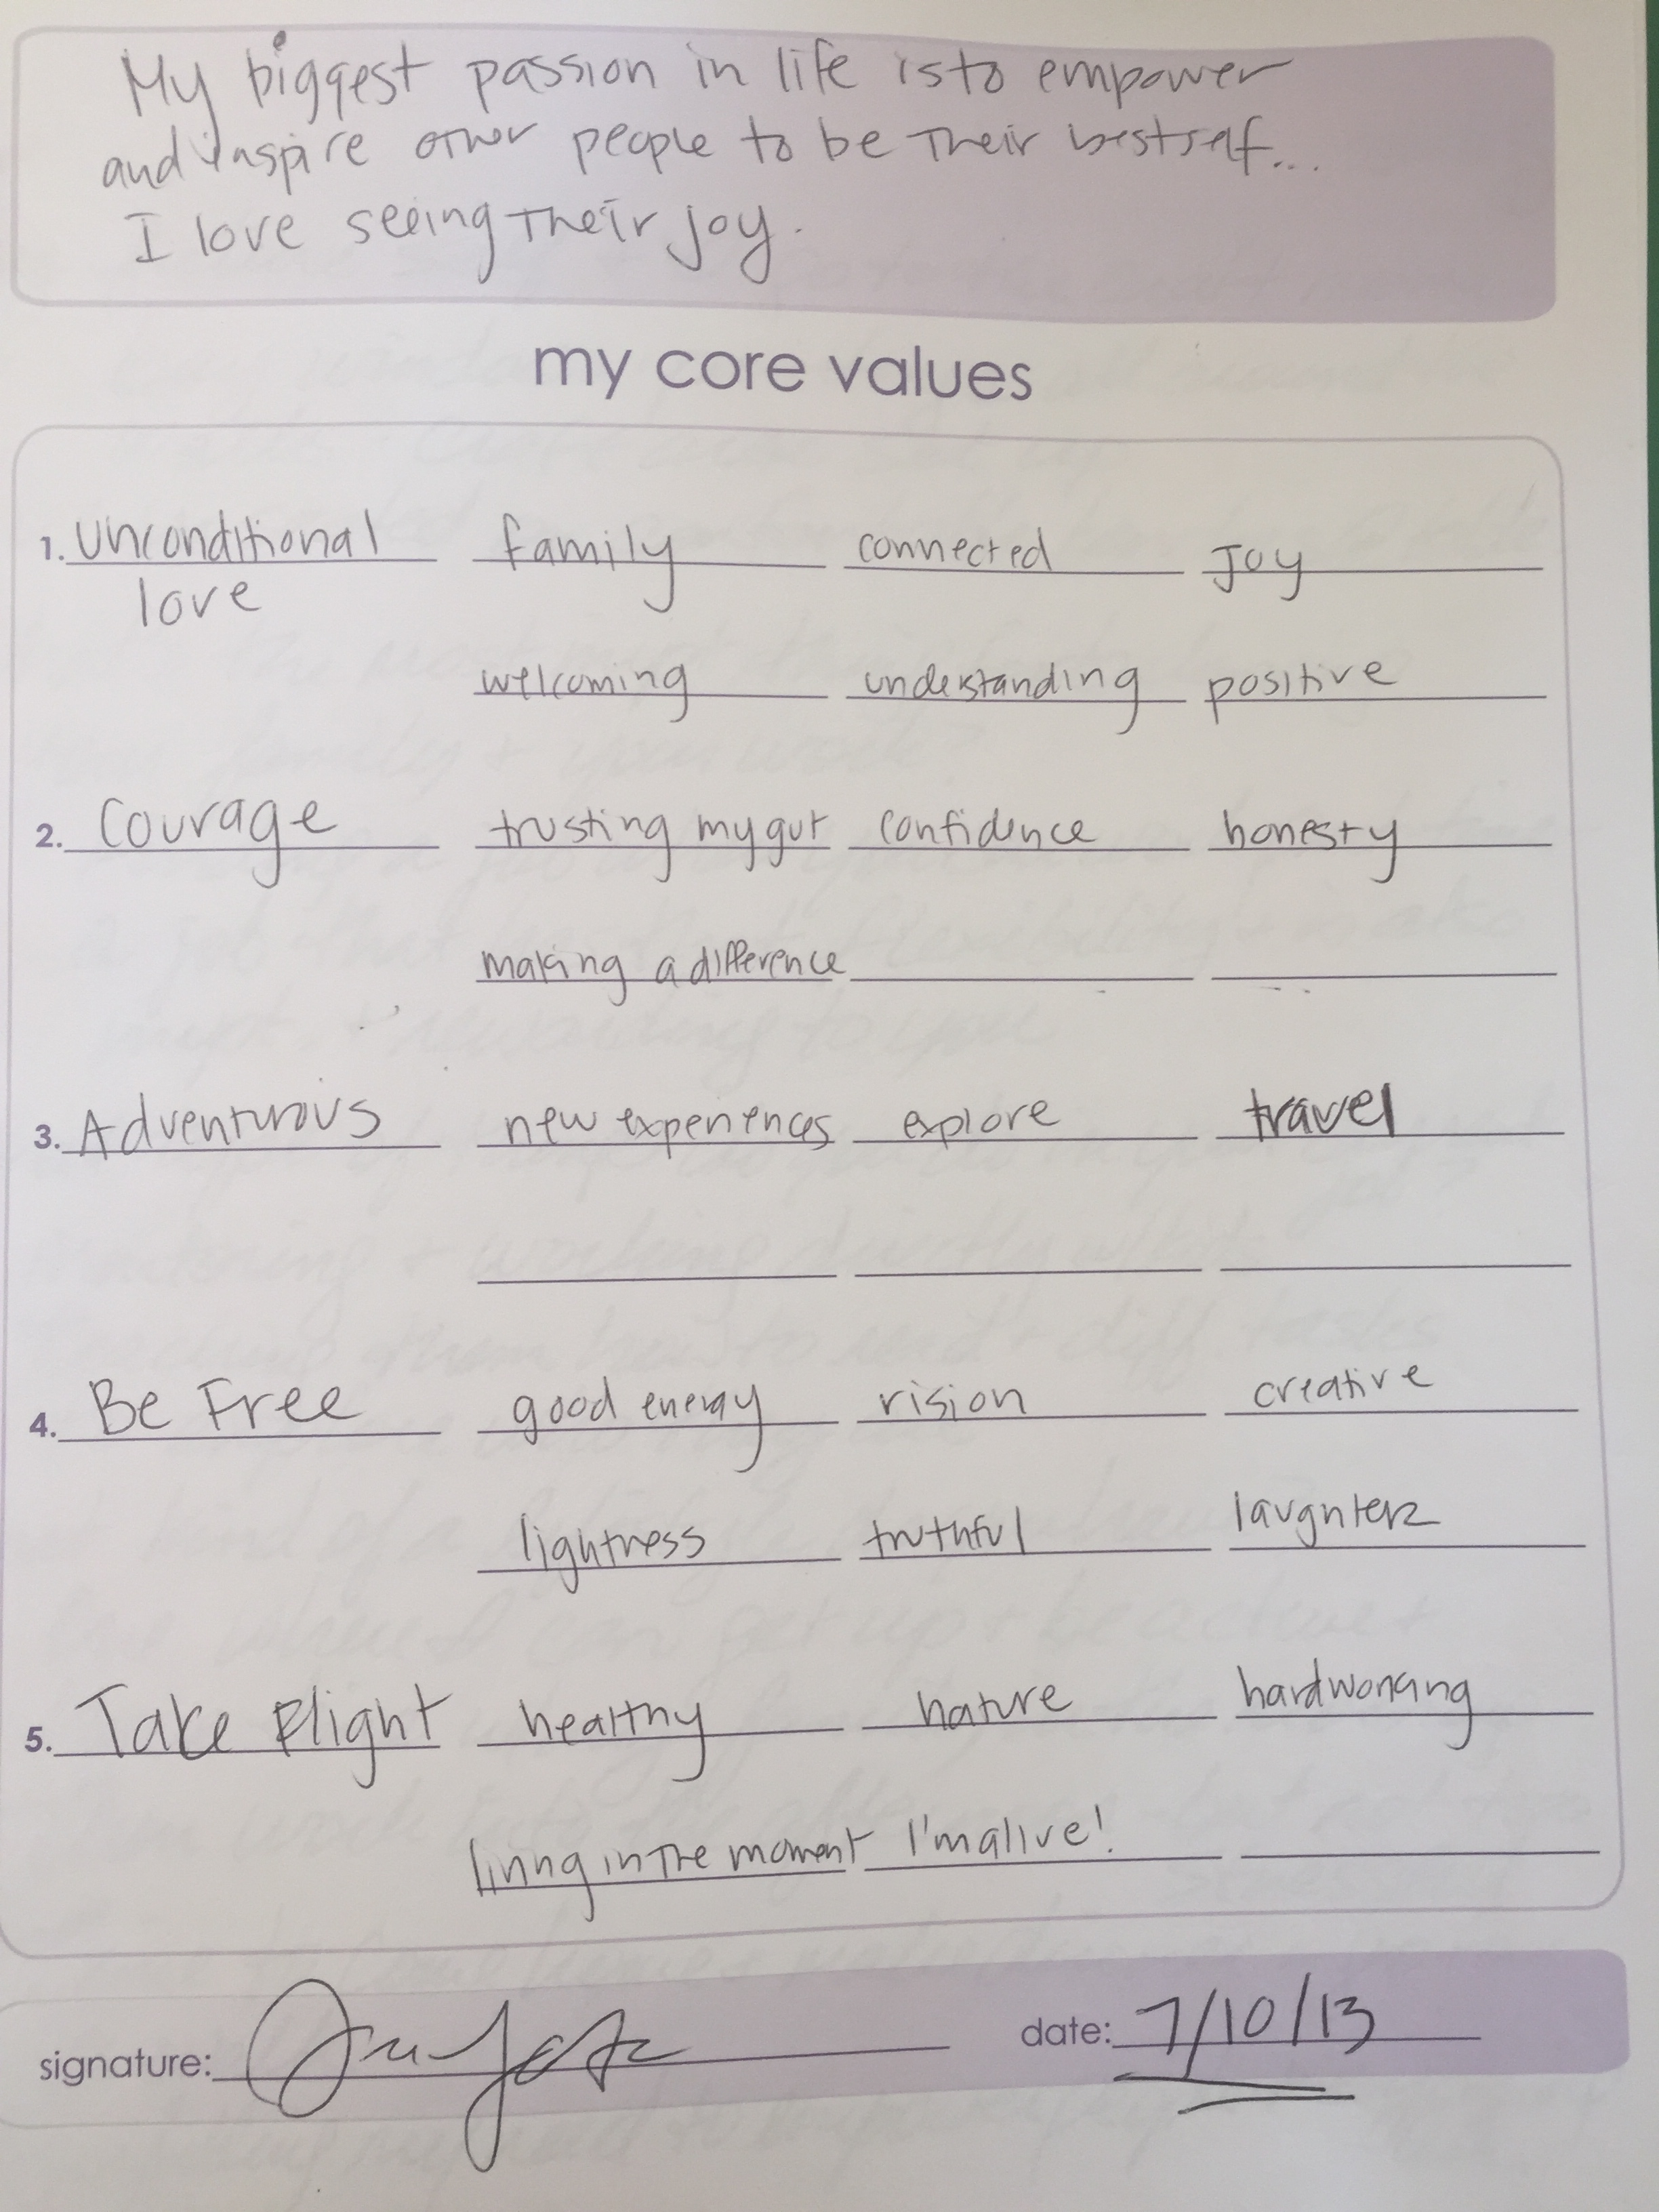 My biggest passion in life is to empower
and inspire other people to be their best self...
I love seeing their joy.
my core values
1. unconditional family connected Joy
love
welcoming understanding positive
2. Courage trusting my gut confidence honesty
making a difference
3. Adventurous new experiences explore travel
4. Be Free good energy vision creative
lightness truthful laughter
5. Take Flight healthy nature hardworking
living in the moment I'm alive!
signature: date: 7/10/13